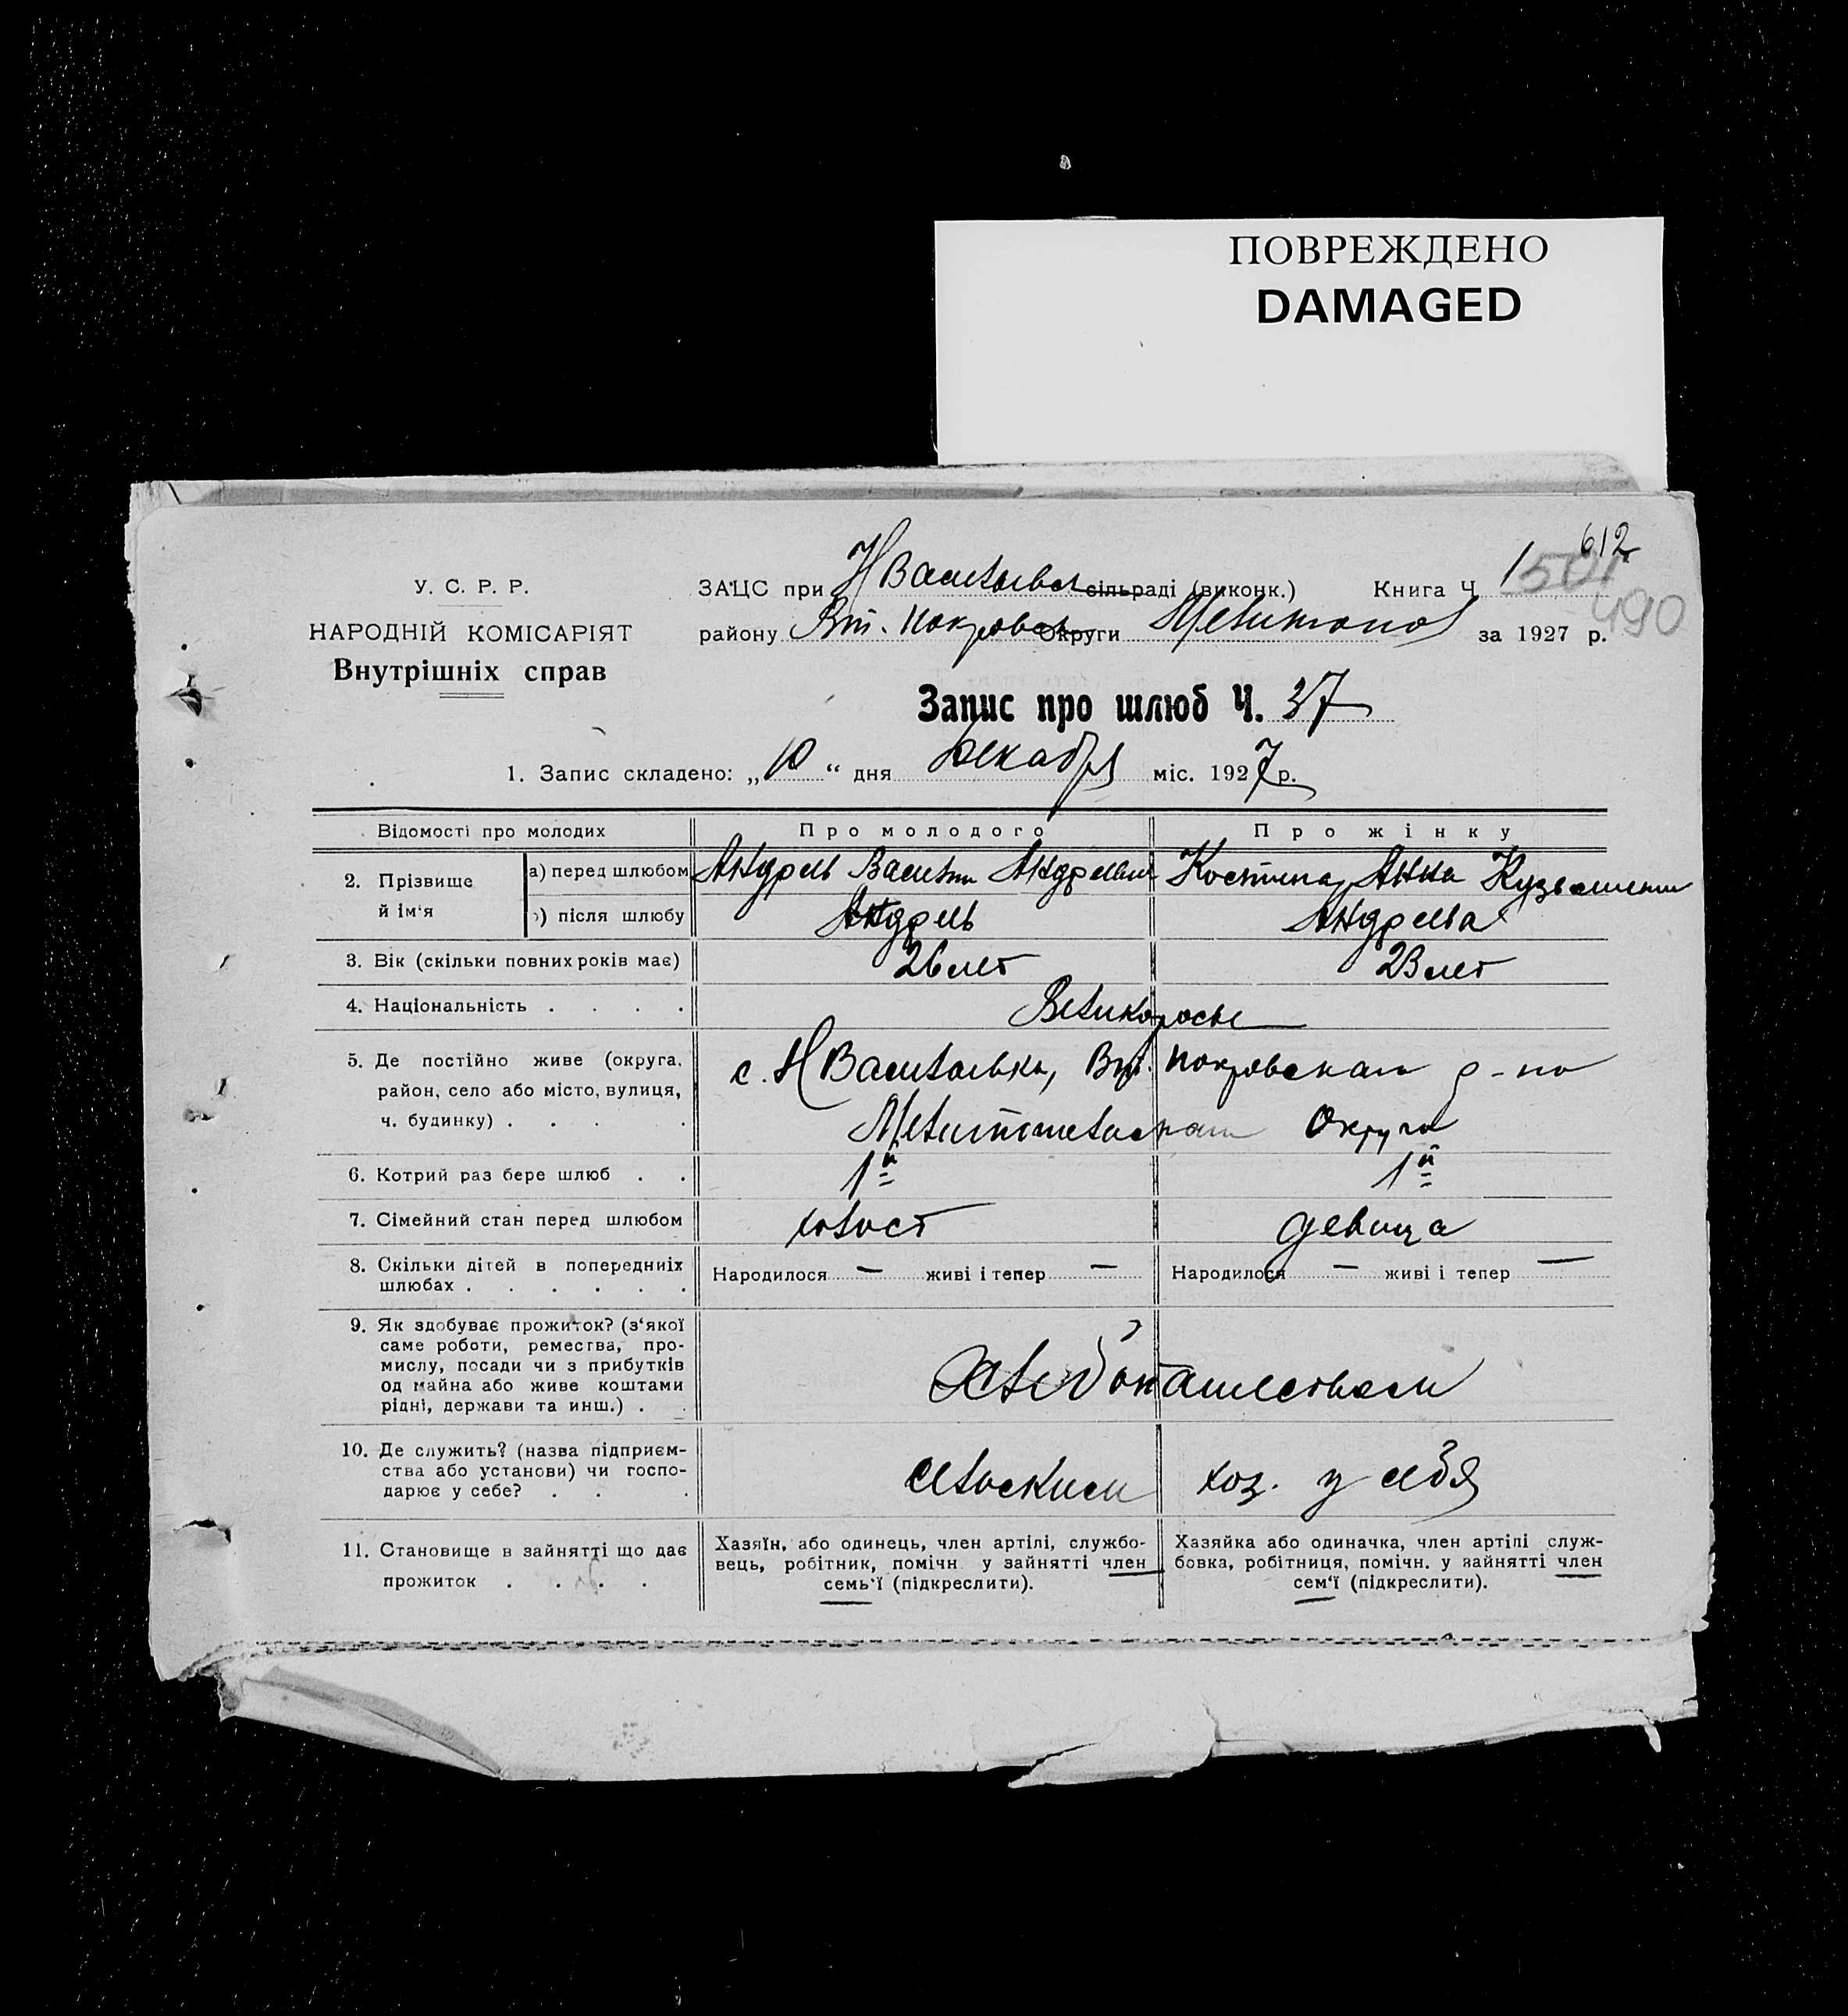 ПОВРЕЖДЕНО
DAMAGED
612
У. С. Р. Р.
НАРОДНІЙ КОМІСАРІЯТ
Внутрішніх справ
ЗАЦС при Н Васильевск сільраді (виконк.) Книга Ч 1
490
району Вт. Покровск Округи Мелитопол за 1927 р.
Запис про шлюб Ч. 37
1. Запис складено: „10“ дня Декабря міс. 1927 р.
Відомості про молодих Про молодого Про жінку
2. Прізвище й ім‘я
а) перед шлюбом Андреев Васили Андреевич Костина Анна Кузьминич
б) після шлюбу Андреев Андреева
3. Вік (скільки повних років має) 26 лет 23 лет
4. Національність . . . . Великоросы
5. Де постійно живе (округа, район, село або місто, вулиця, ч. будинку) . . . .
с. Н Васильевка, Вт. Покровскаго р-на
Округа
6. Котрий раз бере шлюб . . 1й 1й
7. Сімейний стан перед шлюбом холост девица
8. Скільки дітей в попередниіх шлюбах . . . . . .
Народилося — живі і тепер — Народилося — живі і тепер —
9. Як здобуває прожиток? (з‘якої
саме роботи, ремества, про-
мислу, посади чи з прибутків
од майна або живе коштами
рідні, держави та инш.) . .
Хлебопашеством
10. Де служить? (назва підприєм-
ства або установи) чи госпо-
дарює у себе? . . .
сельским хоз. у себя
11. Становище в зайнятті що дає
прожиток . . . .
Хазяїн, або одинець, член артілі, службо-
вець, робітник, помічн. у зайнятті член
семь‘ї (підкреслити).
Хазяйка або одиначка, член артілі служ-
бовка, робітниця, помічн. у зайнятті член
сем‘ї (підкреслити).